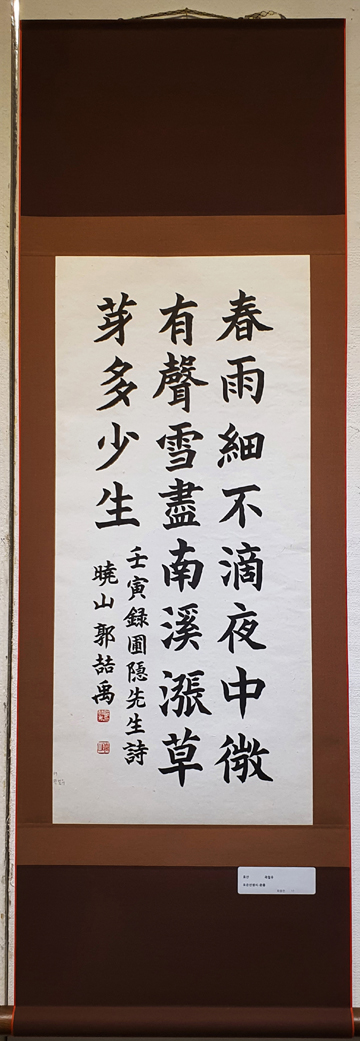 春雨細不滴夜中微
有聲雪盡南溪漲草
芽多少生
壬寅録圃隱先生詩
曉山郭喆禹